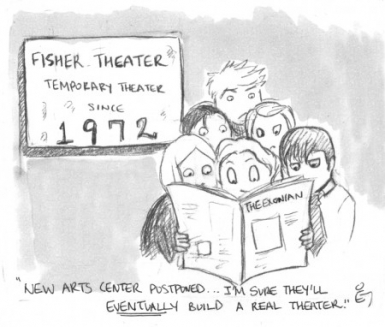 FISHER THEATER
TEMPORARY THEATER
SINCE
1972
THE EXONIAN
"NEW ARTS CENTER POSTPONED... I'M SURE THEY'LL
EVENTUALLY BUILD A REAL THEATER."